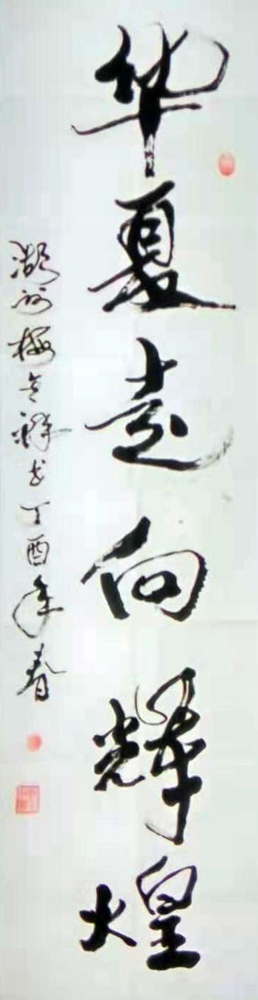 华夏走向辉煌
湖州梅書祥书丁酉年春